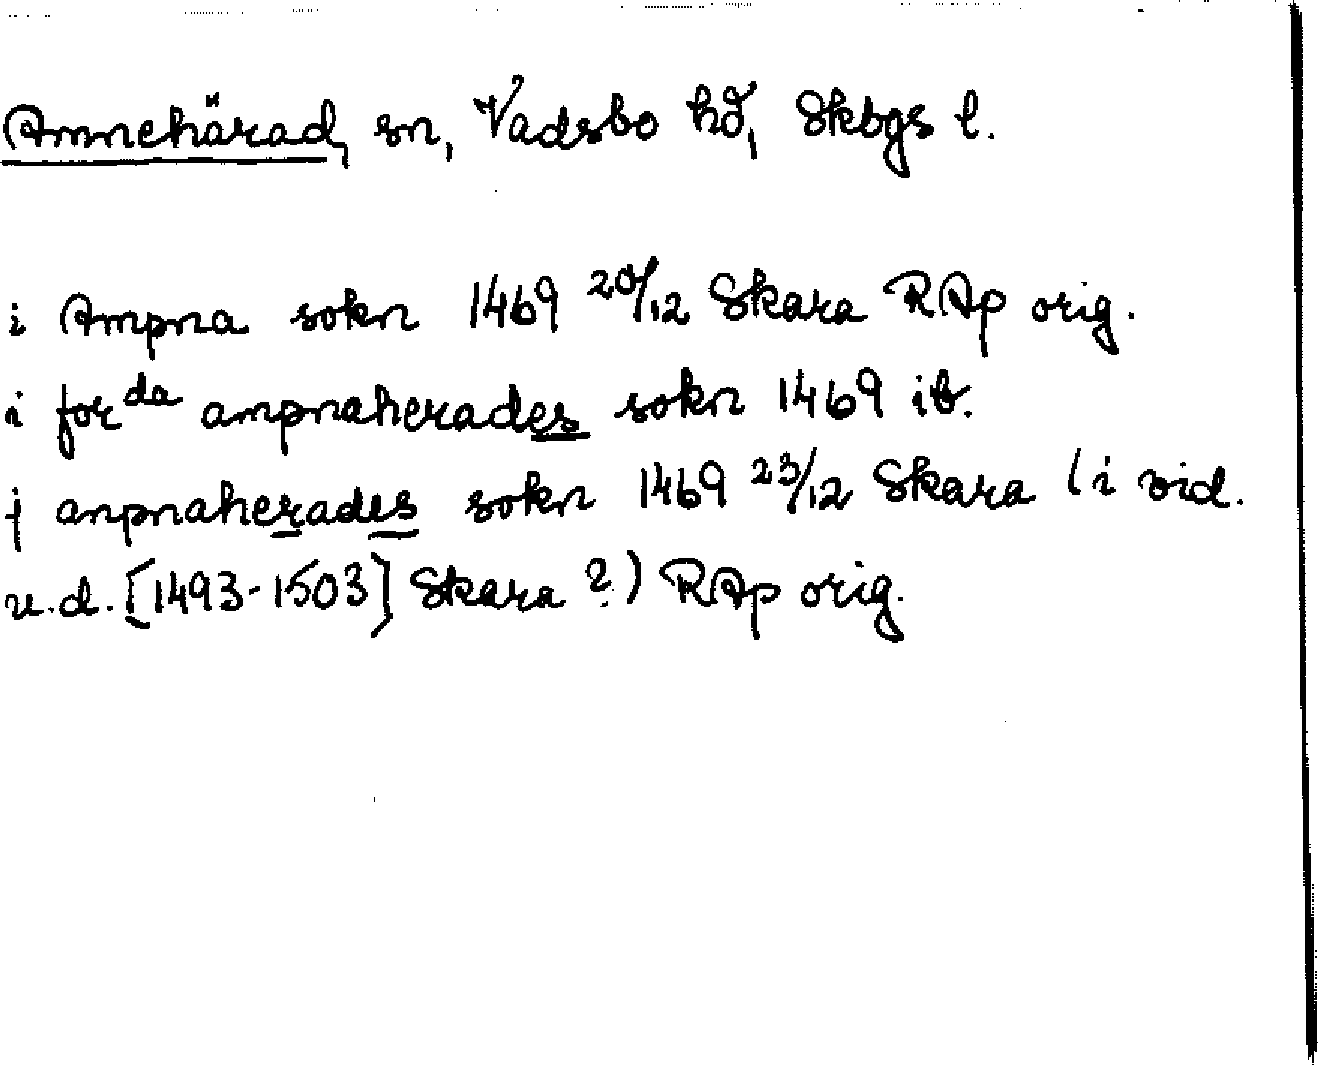 Amnehärad, sn, Vadsbo hd, Skbgs l.
i Ampna sokn 1469 20/12 Skara RAp orig.
i forda ampnaherades sokn 1469 ib.
j anpnaherades sokn 1469 23/12 Skara (i vid.
u.d. [1493-1503] Skara?) RAp orig.